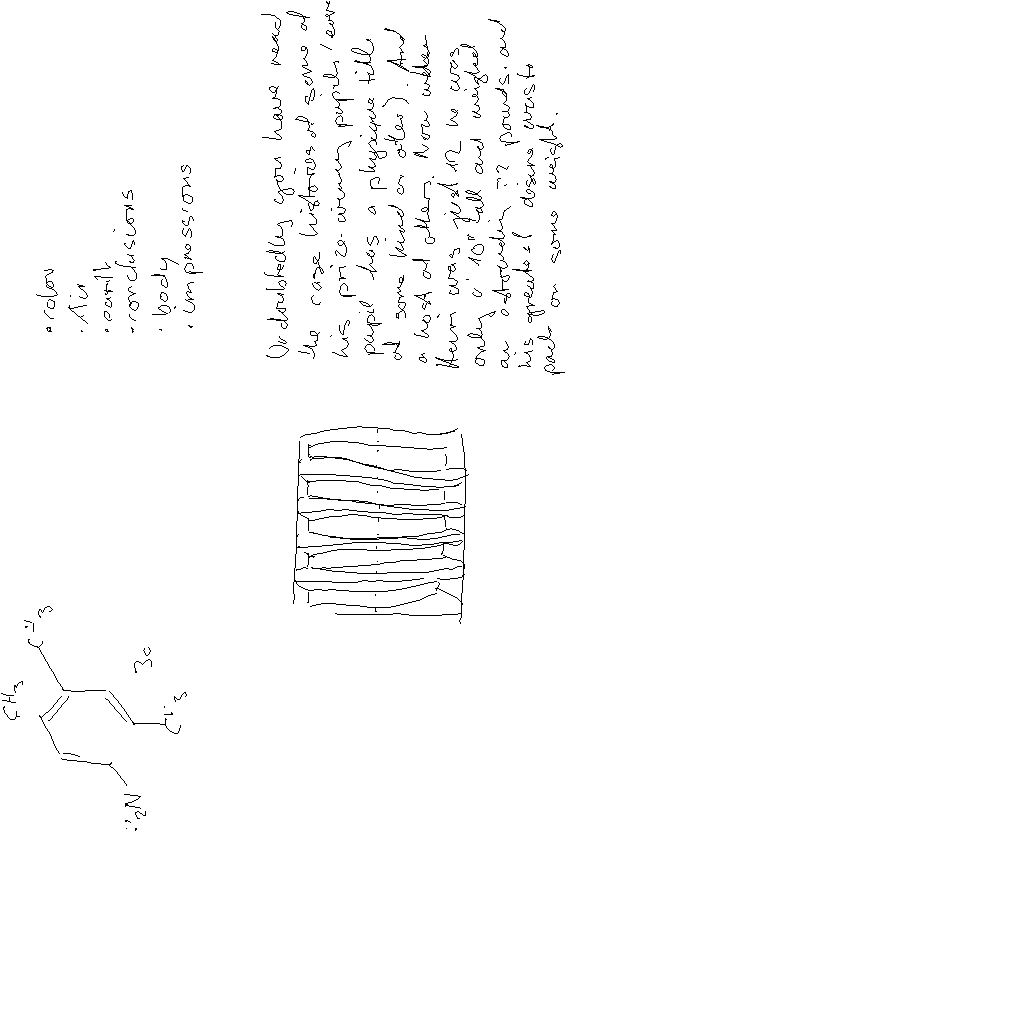 • color
• Air
• earth
• conclusions
• body
• impressions
Undoubtedly you have read
the case histories of some of
his prize-winning pupils (every
pupil has a physique title
of some kind or other). And
a host of others. Now when
Henri was just 12 he was
only 4' 10" tall and weighed
an astounding 72 pounds, and
his greatest desire was to
pack on some weight.
CH3
CH3
CH3
H2N